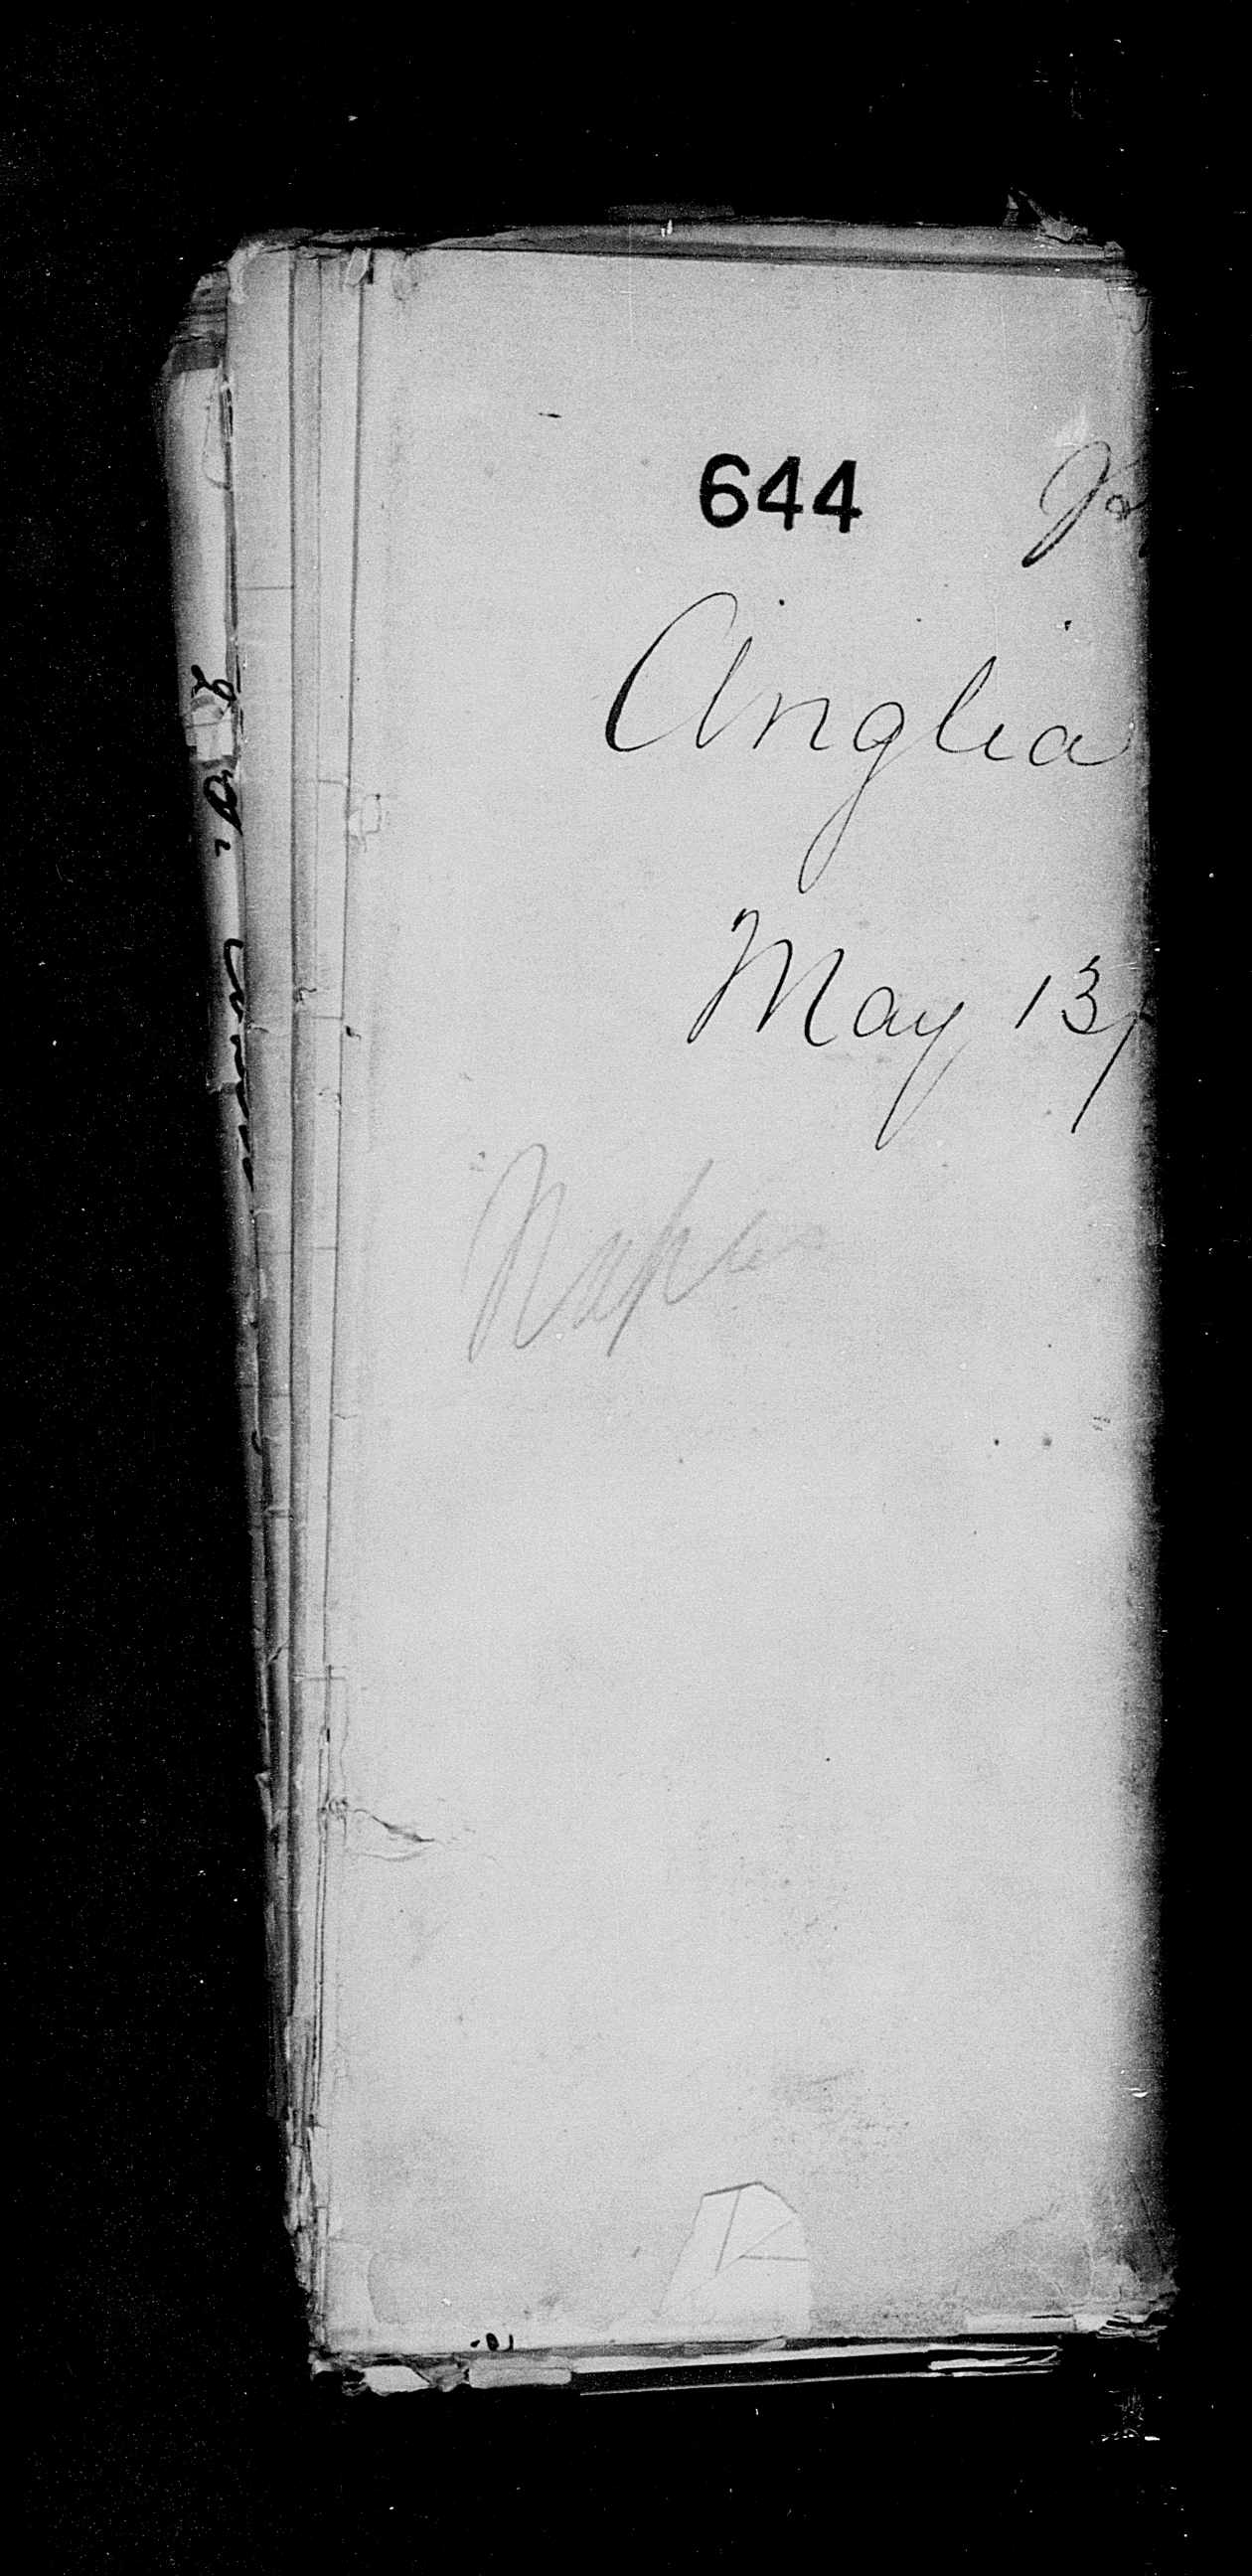 644
Anglia
May 13/
Naples